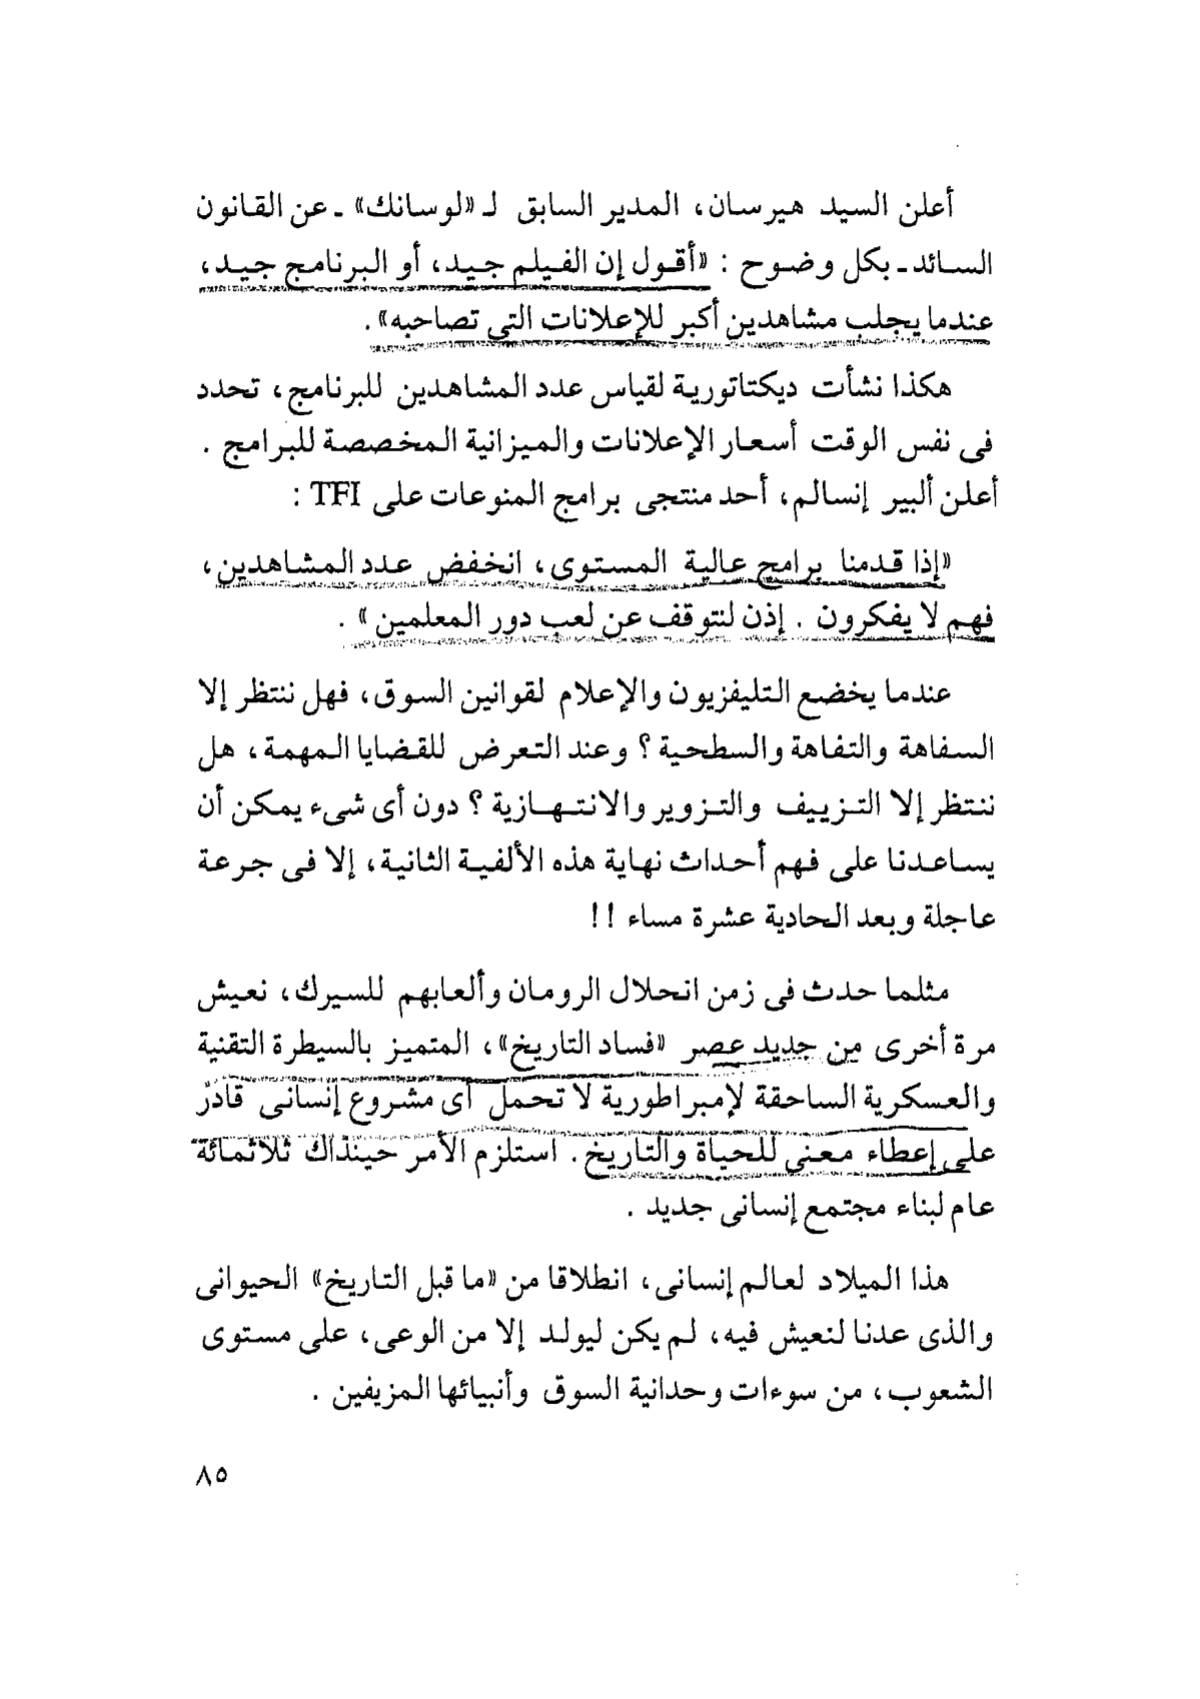 أعلن السيد هيرسان، المدير السابق لـ «لوسانك» ـ عن القانون
السائد ـ بكل وضوح : «أقول إن الفيلم جيد، أو البرنامج جيد،
عندما يجلب مشاهدين أكبر للإعلانات التى تصاحبه» .
هكذا نشأت ديكتاتورية لقياس عدد المشاهدين للبرنامج، تحدد
فى نفس الوقت أسعار الإعلانات والميزانية المخصصة للبرامج .
أعلن ألبير إنسالم، أحد منتجى برامج المنوعات على TFI :
«إذا قدمنا برامج عالية المستوى، انخفض عدد المشاهدين،
فهم لا يفكرون . إذن لنتوقف عن لعب دور المعلمين» .
عندما يخضع التليفزيون والإعلام لقوانين السوق، فهل ننتظر إلا
السفاهة والتفاهة والسطحية ؟ وعند التعرض للقضايا المهمة، هل
ننتظر إلا التزييف والتزوير والانتهازية ؟ دون أى شىء يمكن أن
يساعدنا على فهم أحداث نهاية هذه الألفية الثانية، إلا فى جرعة
عاجلة وبعد الحادية عشرة مساء !!
مثلما حدث فى زمن انحلال الرومان وألعابهم للسيرك، نعيش
مرة أخرى من جديد عصر «فساد التاريخ»، المتميز بالسيطرة التقنية
والعسكرية الساحقة لإمبراطورية لا تحمل أى مشروع إنسانى قادر
على إعطاء معنى للحياة والتاريخ. استلزم الأمر حينذاك ثلاثمائة
عام لبناء مجتمع إنسانى جديد .
هذا الميلاد لعالم إنسانى، انطلاقا من «ما قبل التاريخ» الحيوانى
والذى عدنا لنعيش فيه، لم يكن ليولد إلا من الوعى، على مستوى
الشعوب، من سوءات وحدانية السوق وأنبيائها المزيفين .
٨٥